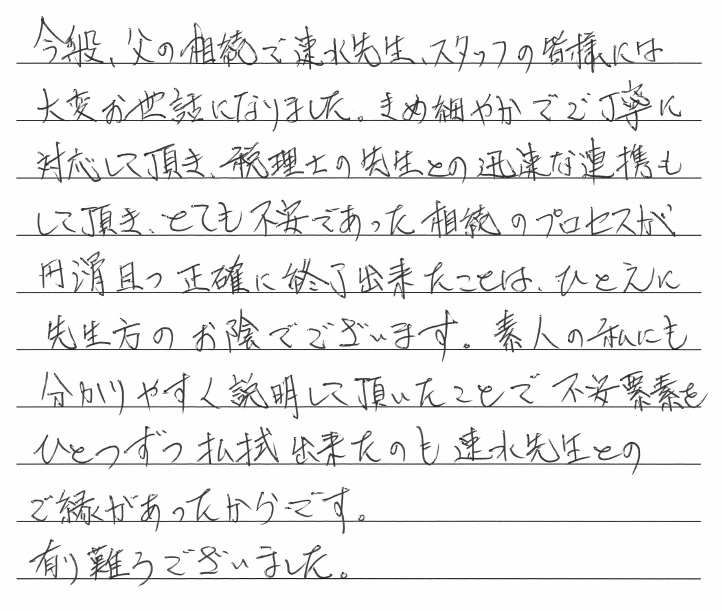 今般、父の相続で速水先生、スタッフの皆様には
大変お世話になりました。きめ細やかでご丁寧に
対応して頂き、税理士の先生との迅速な連携も
して頂き、とても不安であった相続のプロセスが
円滑且つ正確に終了出来たことは、ひとえに
先生方のお陰でございます。素人の私にも
分かりやすく説明して頂いたことで不安要素を
ひとつずつ払拭出来たのも速水先生との
ご縁があったからです。
有り難うございました。